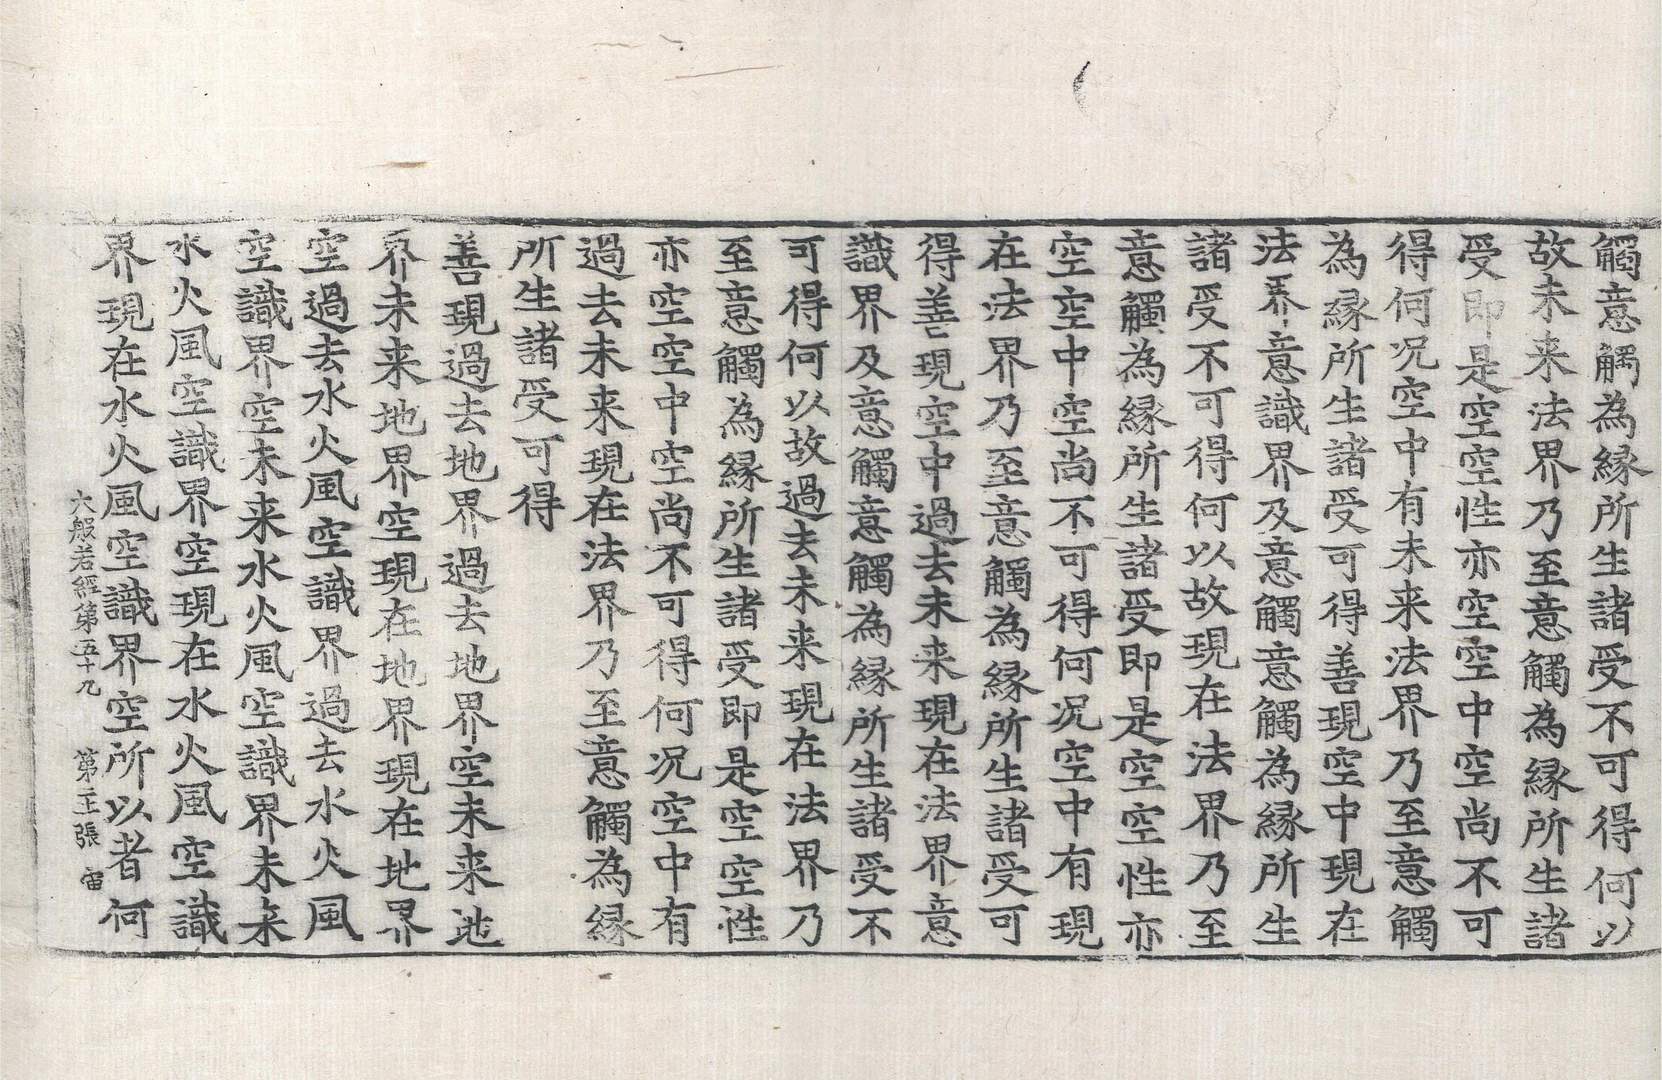 觸意觸為縁所生諸受不可得何以
故未来法界乃至意觸為縁所生諸
受即是空空性亦空空中空尚不可
得何况空中有未来法界乃至意觸
為縁所生諸受可得善現空中現在
法界意識界及意觸意觸為縁所生
諸受不可得何以故現在法界乃至
意觸為縁所生諸受即是空空性亦
空空中空尚不可得何况空中有現
在法界乃至意觸為縁所生諸受可
得善現空中過去未来現在法界意
識界及意觸意觸為縁所生諸受不
可得何以故過去未来現在法界乃
至意觸為縁所生諸受即是空空性
亦空空中空尚不可得何况空中有
過去未来現在法界乃至意觸為縁
所生諸受可得
善現過去地界過去地界空未来地
界未来地界空現在地界現在地界
空過去水火風空識界過去水火風
空識界空未来水火風空識界未来
水火風空識界空現在水火風空識
界現在水火風空識界空所以者何
大般若經第五十九 第二張 宙